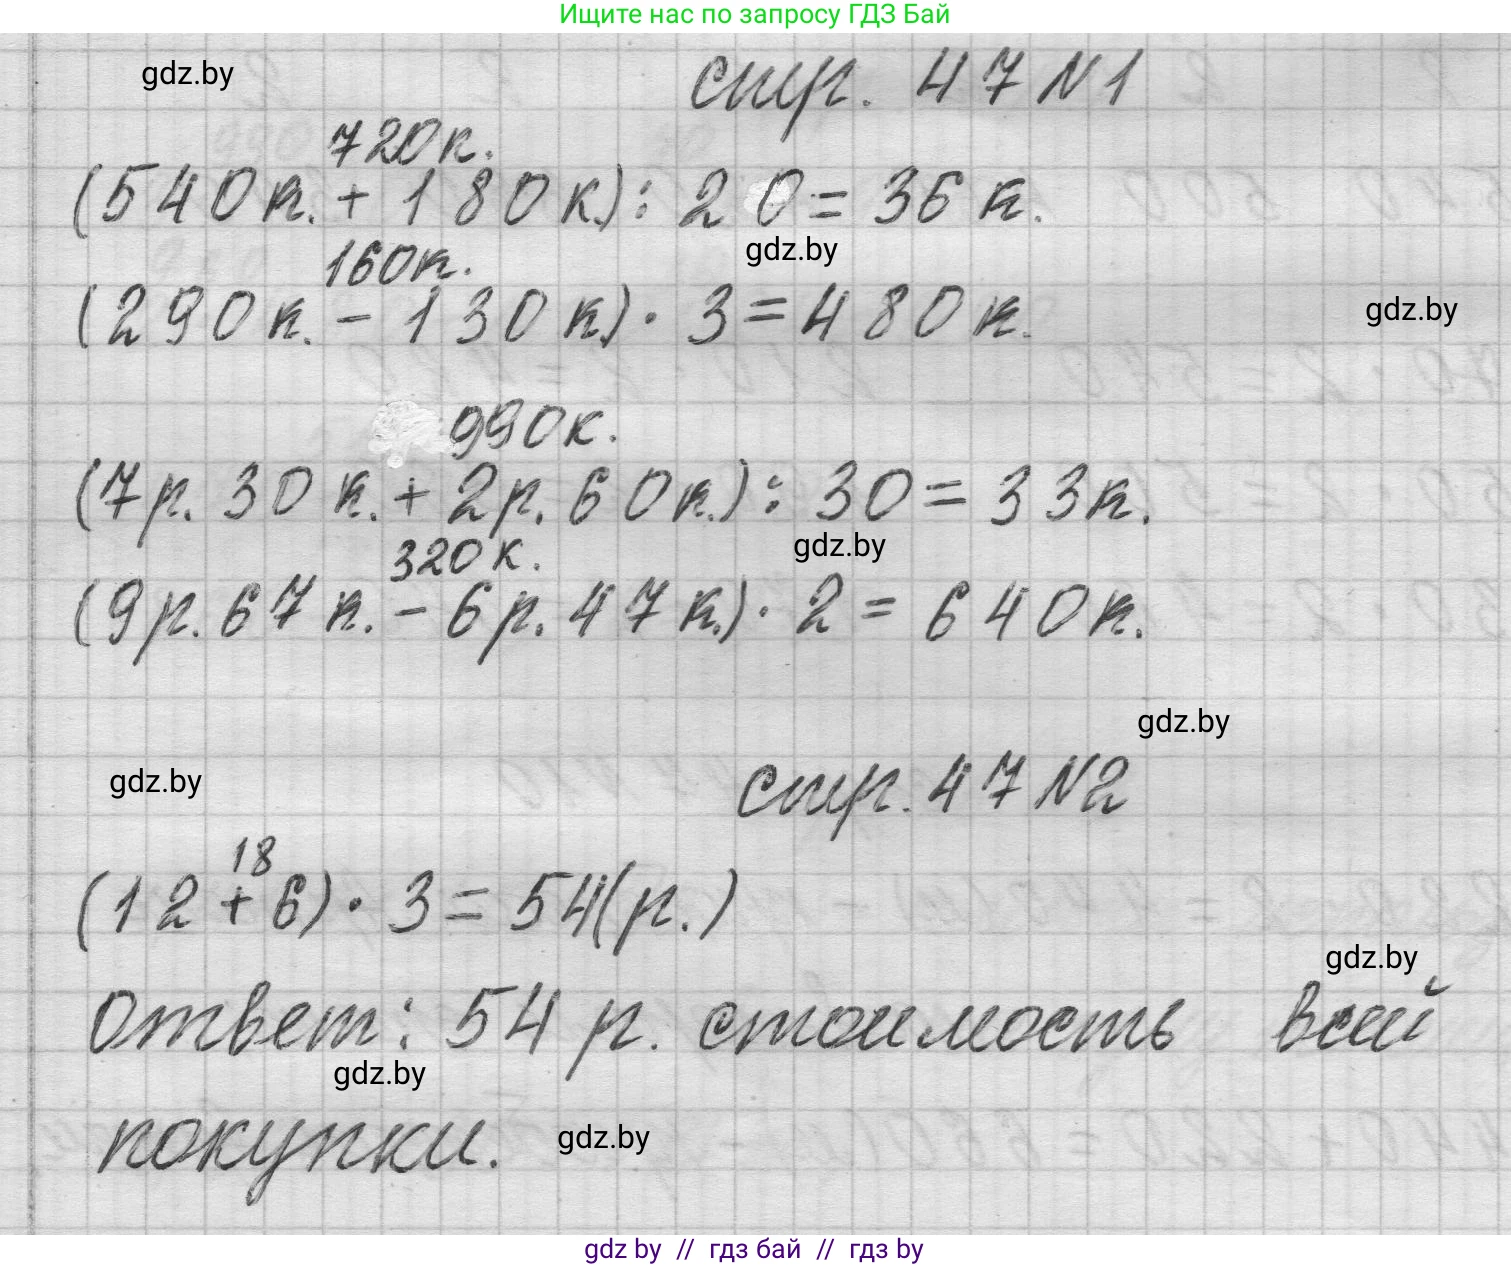 Ищите нас по запросу ГДЗ Бай
gdz.by
стр. 47 N1
720к.
(540к. + 180к.) : 20 = 36 к.
gdz.by
160к.
(290к. - 130к.) · 3 = 480к.
gdz.by
990к.
(7р. 30 к. + 2р. 60к.) : 30 = 33к.
gdz.by
320к.
(9р. 67к. - 6р. 47к.) · 2 = 640к.
gdz.by
gdz.by
стр. 47 N2
18
(12 + 6) · 3 = 54(р.)
gdz.by
Ответ: 54 р. стоимость всей
gdz.by
покупки.
gdz.by
gdz by // гдз бай // гдз by